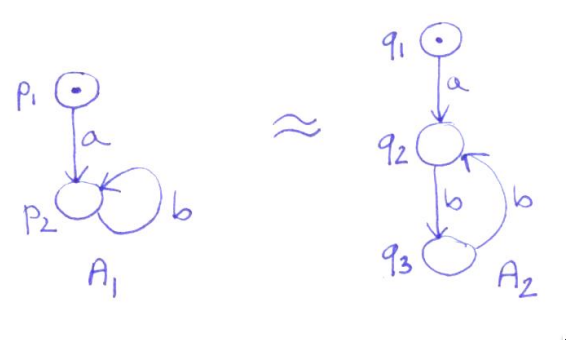 p1
a
p2
b
A1
≈
q1
a
q2
b
b
q3
A2